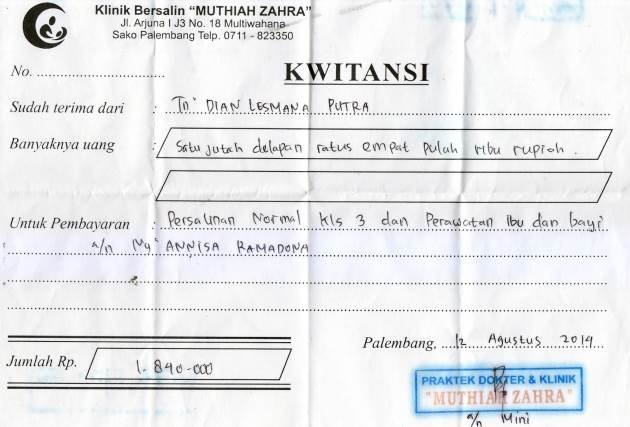 Klinik Bersalin "MUTHIAH ZAHRA"
Jl. Arjuna I J3 No. 18 Multiwahana
Sako Palembang Telp. 0711 - 823350
No. ..............................
KWITANSI
Sudah terima dari : Tn' DIAN LESMANA PUTRA
Banyaknya uang : Satu jutah delapan ratus empat puluh ribu rupiah.
Untuk Pembayaran : Persalinan Normal Kls 3 dan Perawatan Ibu dan bayi
a/n Ny' ANNISA RAMADONA
Palembang, 12 Agustus 2014
Jumlah Rp. 1.840.000
PRAKTEK DOKTER & KLINIK
"MUTHIAH ZAHRA"
a/n Mini